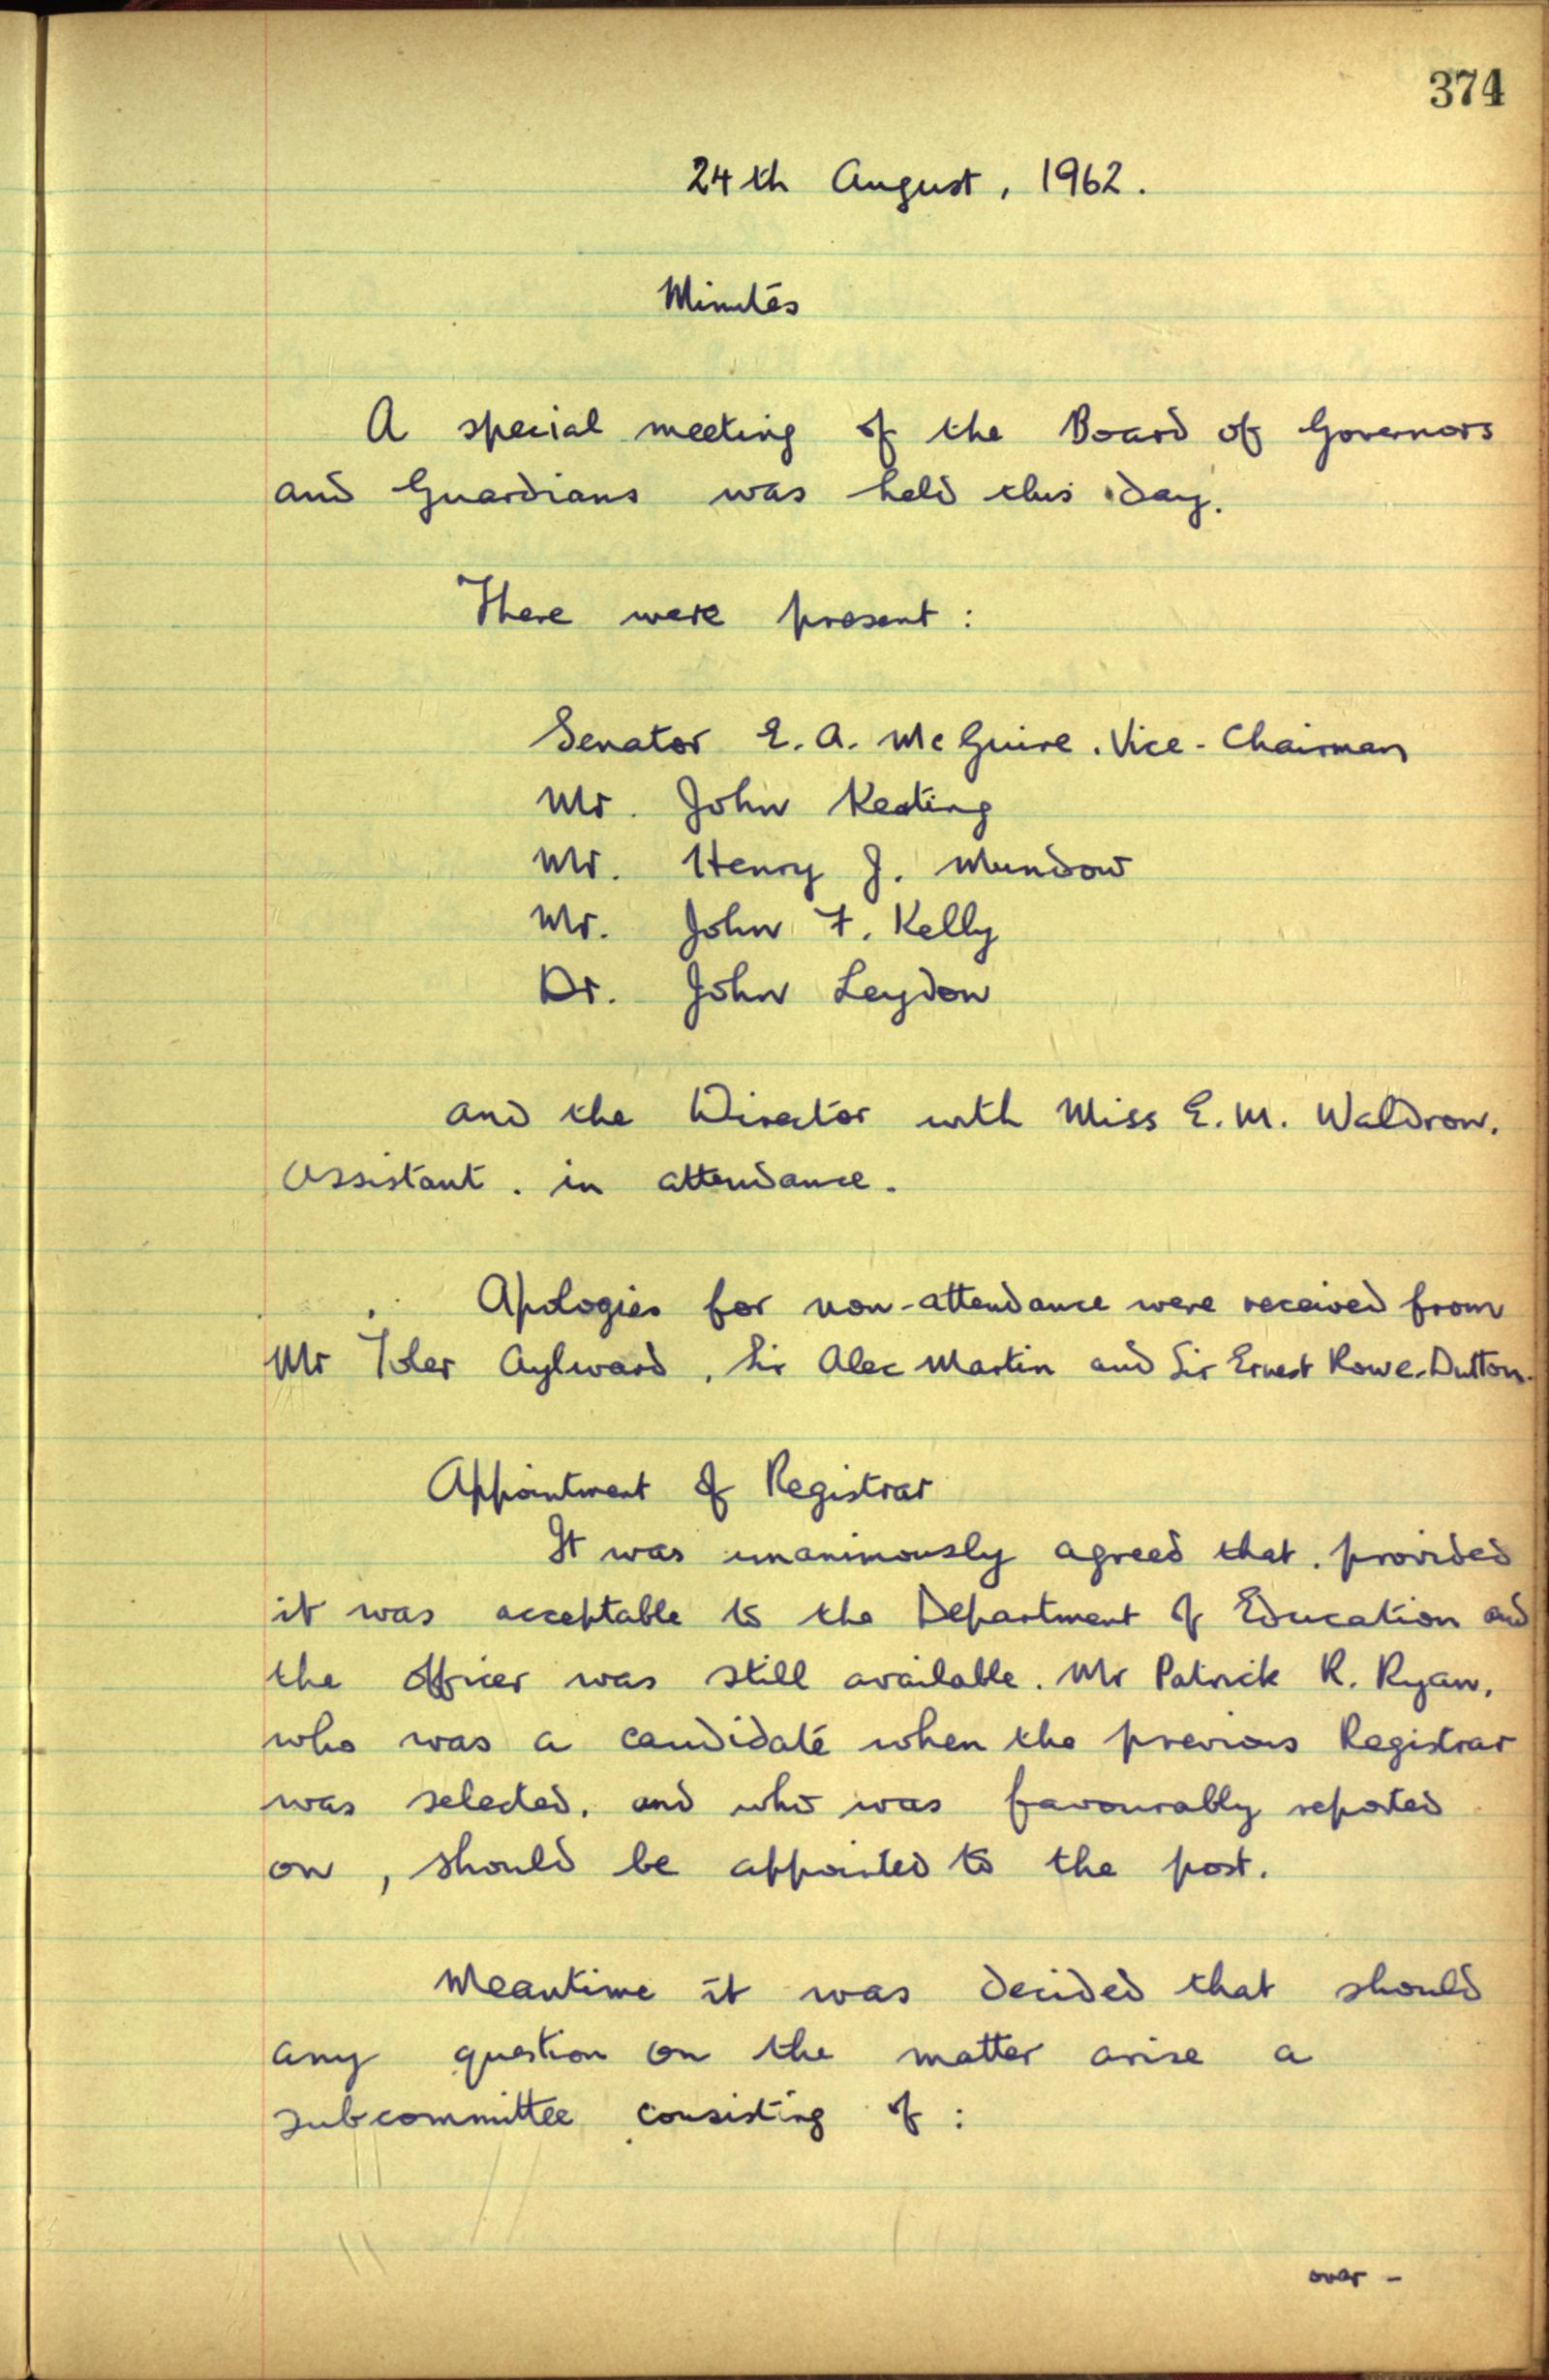 374
24th August, 1962.
Minutes
A special meeting of the Board of Governors
and Guardians was held this day.
There were present:
Senator E. A. McGuire. Vice-Chairman
Mr. John Keating
Mr. Henry J. Mundow
Mr. John F. Kelly
Dr. John Leydon
and the Director with Miss E. M. Waldron.
Assistant. in attendance.
Apologies for non-attendance were received from
Mr Toler Aylward, Sir Alec Martin and Sir Ernest Rowe-Dutton.
Appointment of Registrar
It was unanimously agreed that. provided
it was acceptable to the Department of Education and
the officer was still available. Mr Patrick R. Ryan.
who was a candidate when the previous Registrar
was selected. and who was favourably reported
on, should be appointed to the post.
Meantime it was decided that should
any question on the matter arise a
subcommittee consisting of:
over -